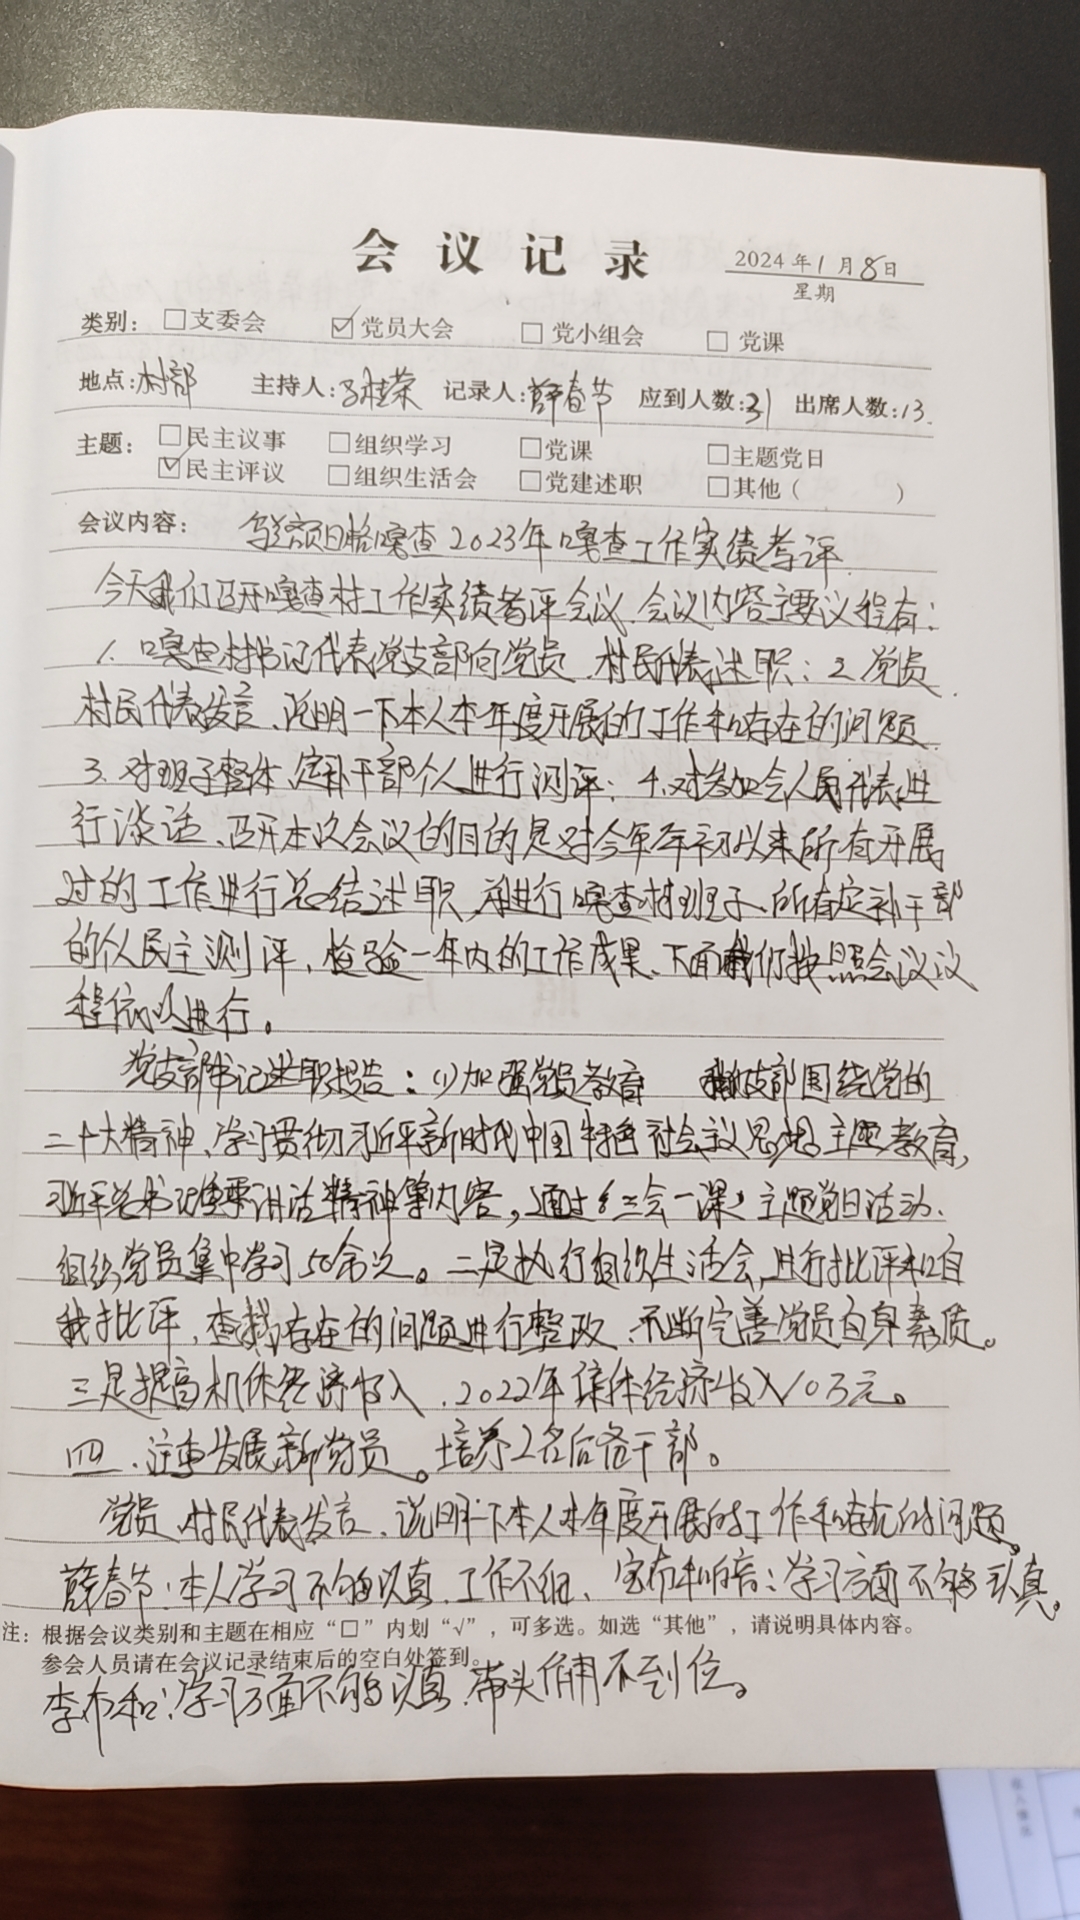 会议记录
2024年1月8日
星期
类别：□支委会 ☑党员大会 □党小组会 □党课
地点：村部 主持人：桂荣 记录人：薛春节 应到人数：31 出席人数：13.
主题：□民主议事 □组织学习 □党课 □主题党日
☑民主评议 □组织生活会 □党建述职 □其他（ ）
会议内容： 日格嘎查2023年嘎查工作实绩考评
今天我们召开嘎查村工作实绩考评会议.会议内容主要议程有：
1、嘎查村书记代表党支部向党员、村民代表述职；2、党员
村民代表发言、说明一下本人本年度开展的工作和存在的问题
3、对班子整体、定补干部个人进行测评；4、对参加会人员代表进
行谈话、召开本次会议的目的是对今年年初以来所有开展
过的工作进行总结述职、并进行嘎查村班子、所有定补干部
的个人民主测评，检验一年内的工作成果、下面我们按照会议议
程依次进行。
党支部书记述职报告：(1)加强党员教育 我们支部围绕党的
二十大精神、学习贯彻习近平新时代中国特色社会主义思想主题教育，
习近平总书记重要讲话精神等内容，通过《三会一课》主题党日活动、
组织党员集中学习50余次。二是执行组织生活会，进行批评和自
我批评，查找存在的问题进行整改、不断完善党员自身素质。
三是提高机体经济收入、2022年集体经济收入10万元。
四、注重发展新党员。培养2名后备干部。
党员、村民代表发言、说明一下本人本年度开展的工作和存在的问题。
薛春节：本人学习不够认真、工作不细、宝布和响音：学习方面不够认真。
注：根据会议类别和主题在相应“□”内划“√”，可多选。如选“其他”，请说明具体内容。
参会人员请在会议记录结束后的空白处签到。
李布和：学习方面不够认真、带头作用不到位。